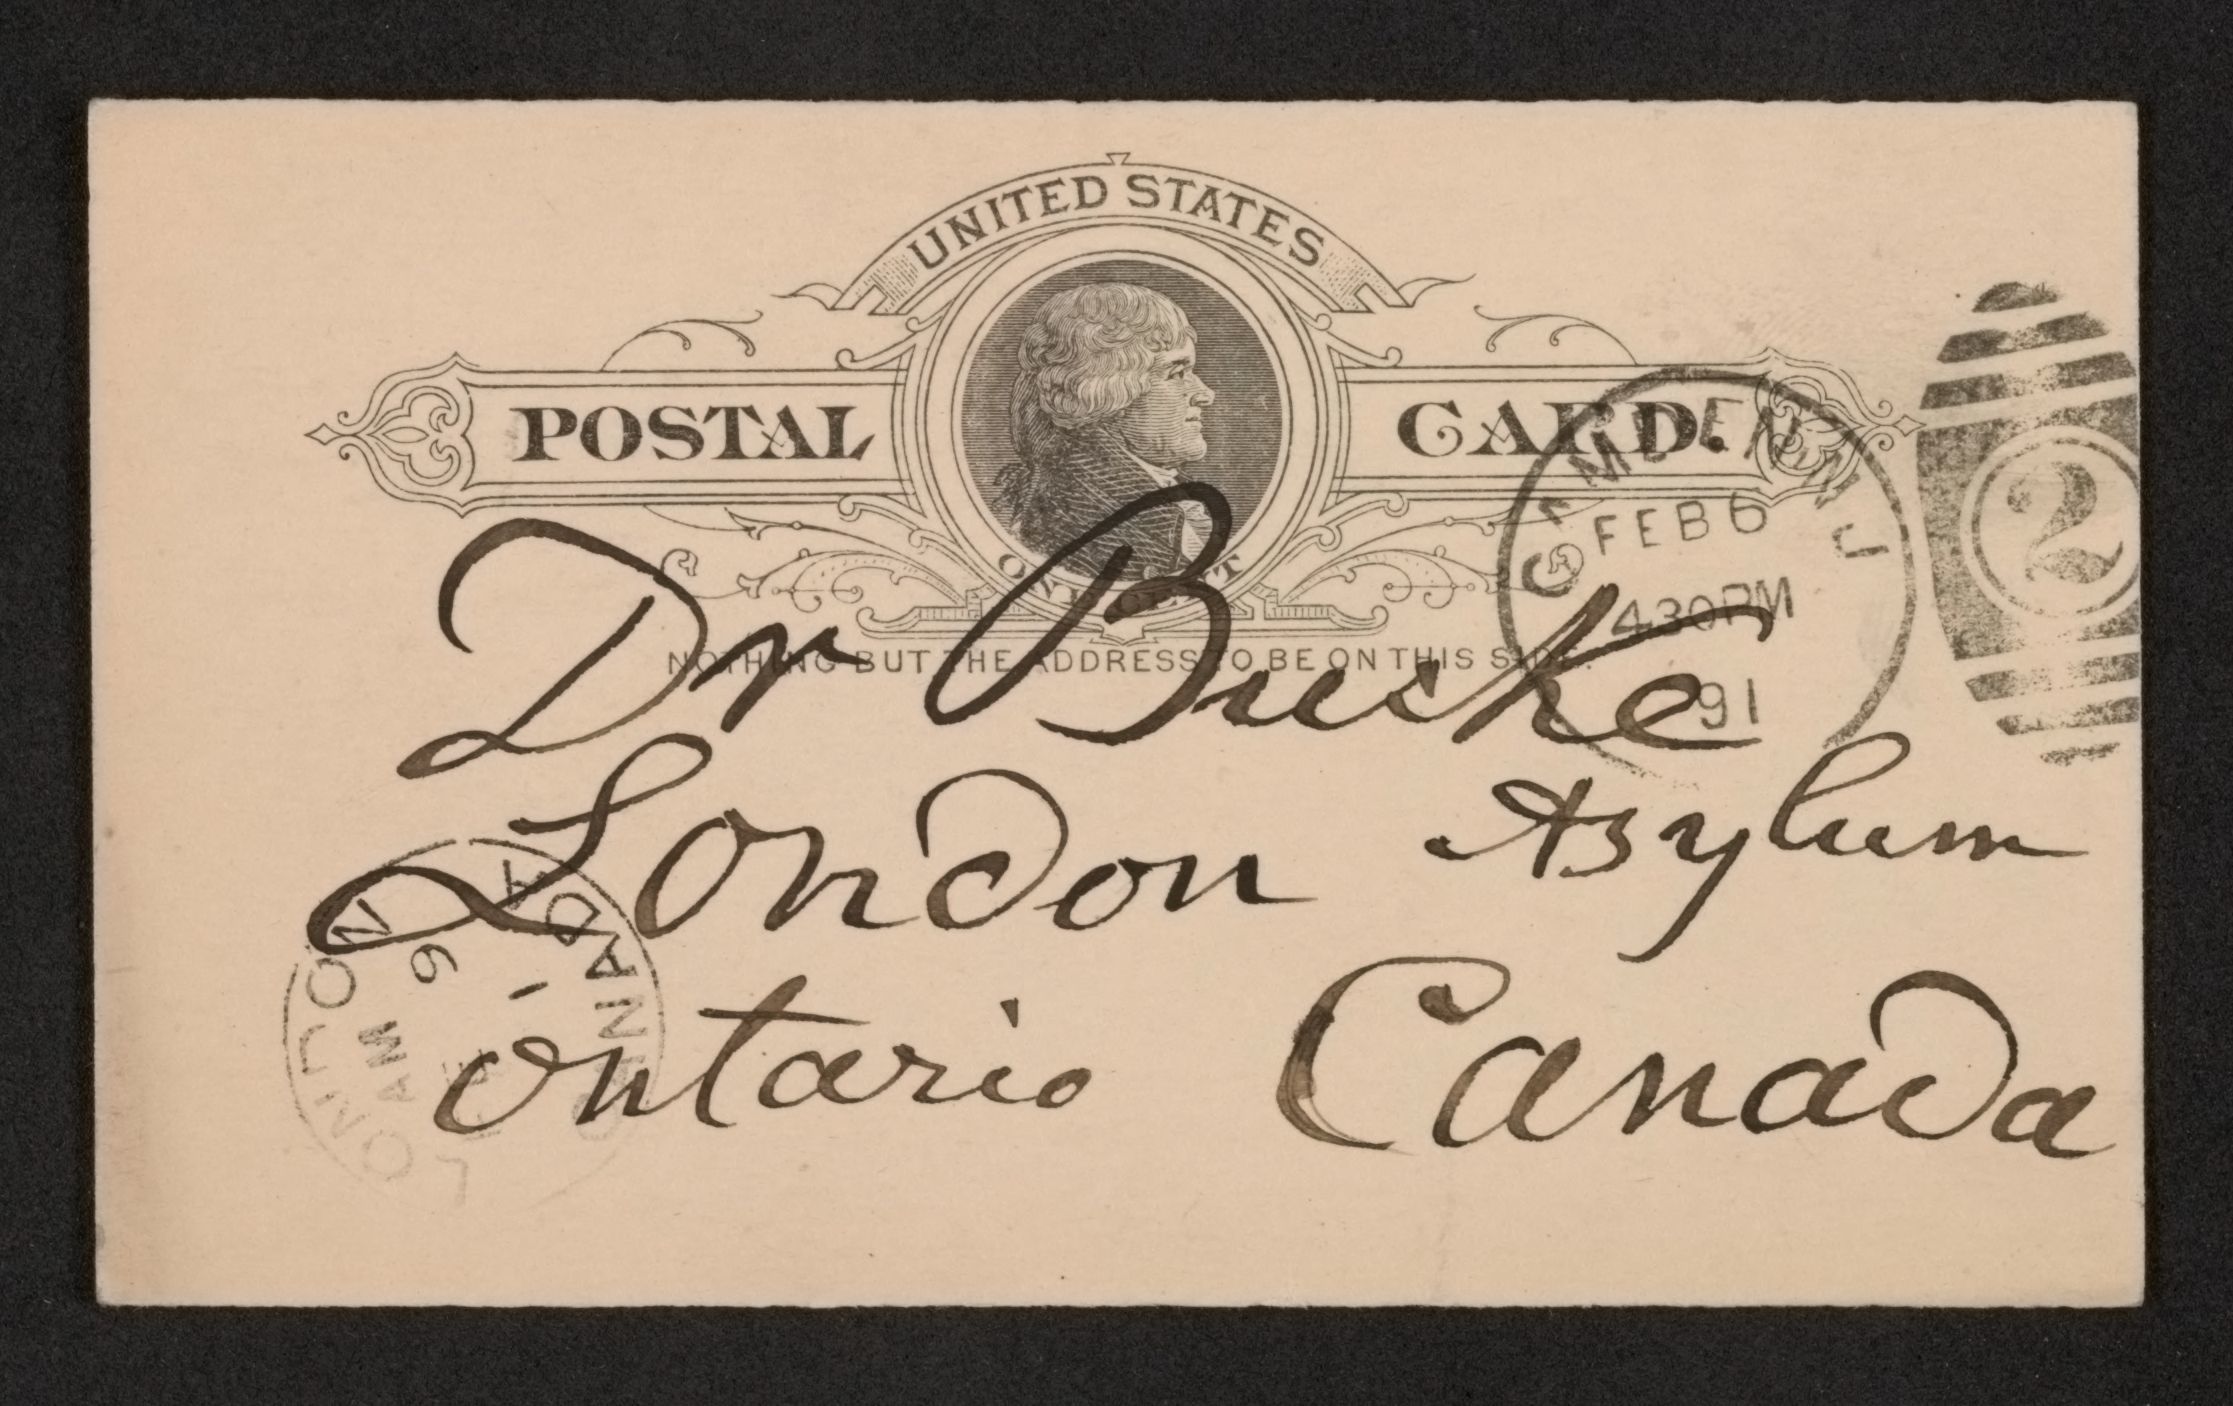 UNITED STATES
POSTAL CARD.
ONE CENT
NOTHING BUT THE ADDRESS TO BE ON THIS SIDE.
CAMDEN N.J.
FEB 6
430PM
91
2
Dr Bucke
London Asylum
Ontario Canada
LONDON
AM
9
CANADA